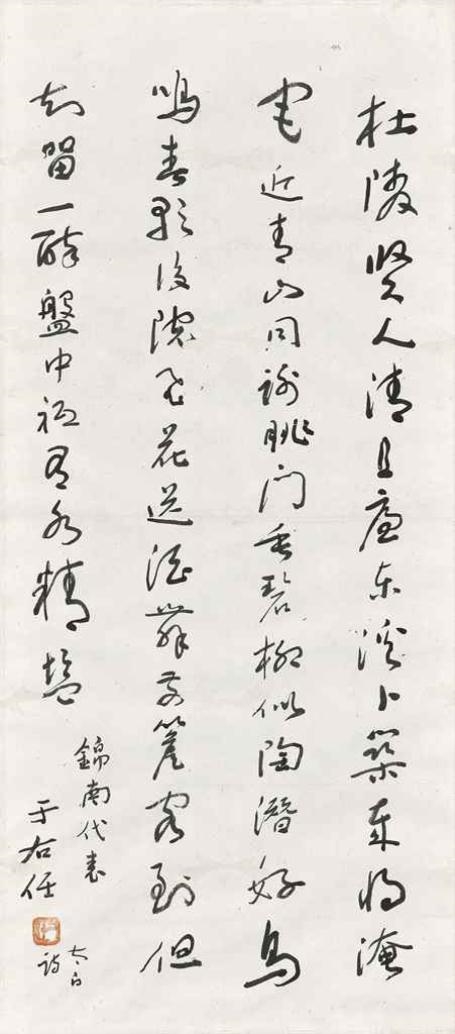 杜陵賢人清且廉東溪卜築歲將淹
宅近青山同謝朓門垂碧柳似陶潛好鳥
鳴春歌後院飛花送酒舞前簷客到但
知留一醉盤中祇有水精鹽
錦南代表
于右任
太白
詩